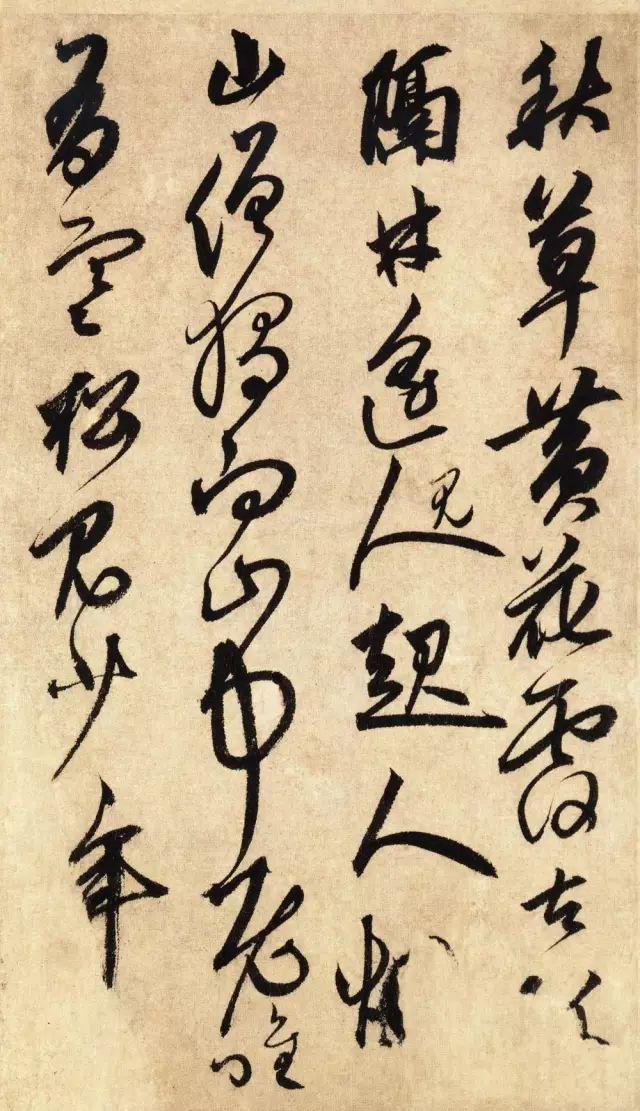 秋草黄花覆古
隔林遥见人起人烟
山僧独向山中老唯
有寒松见少年